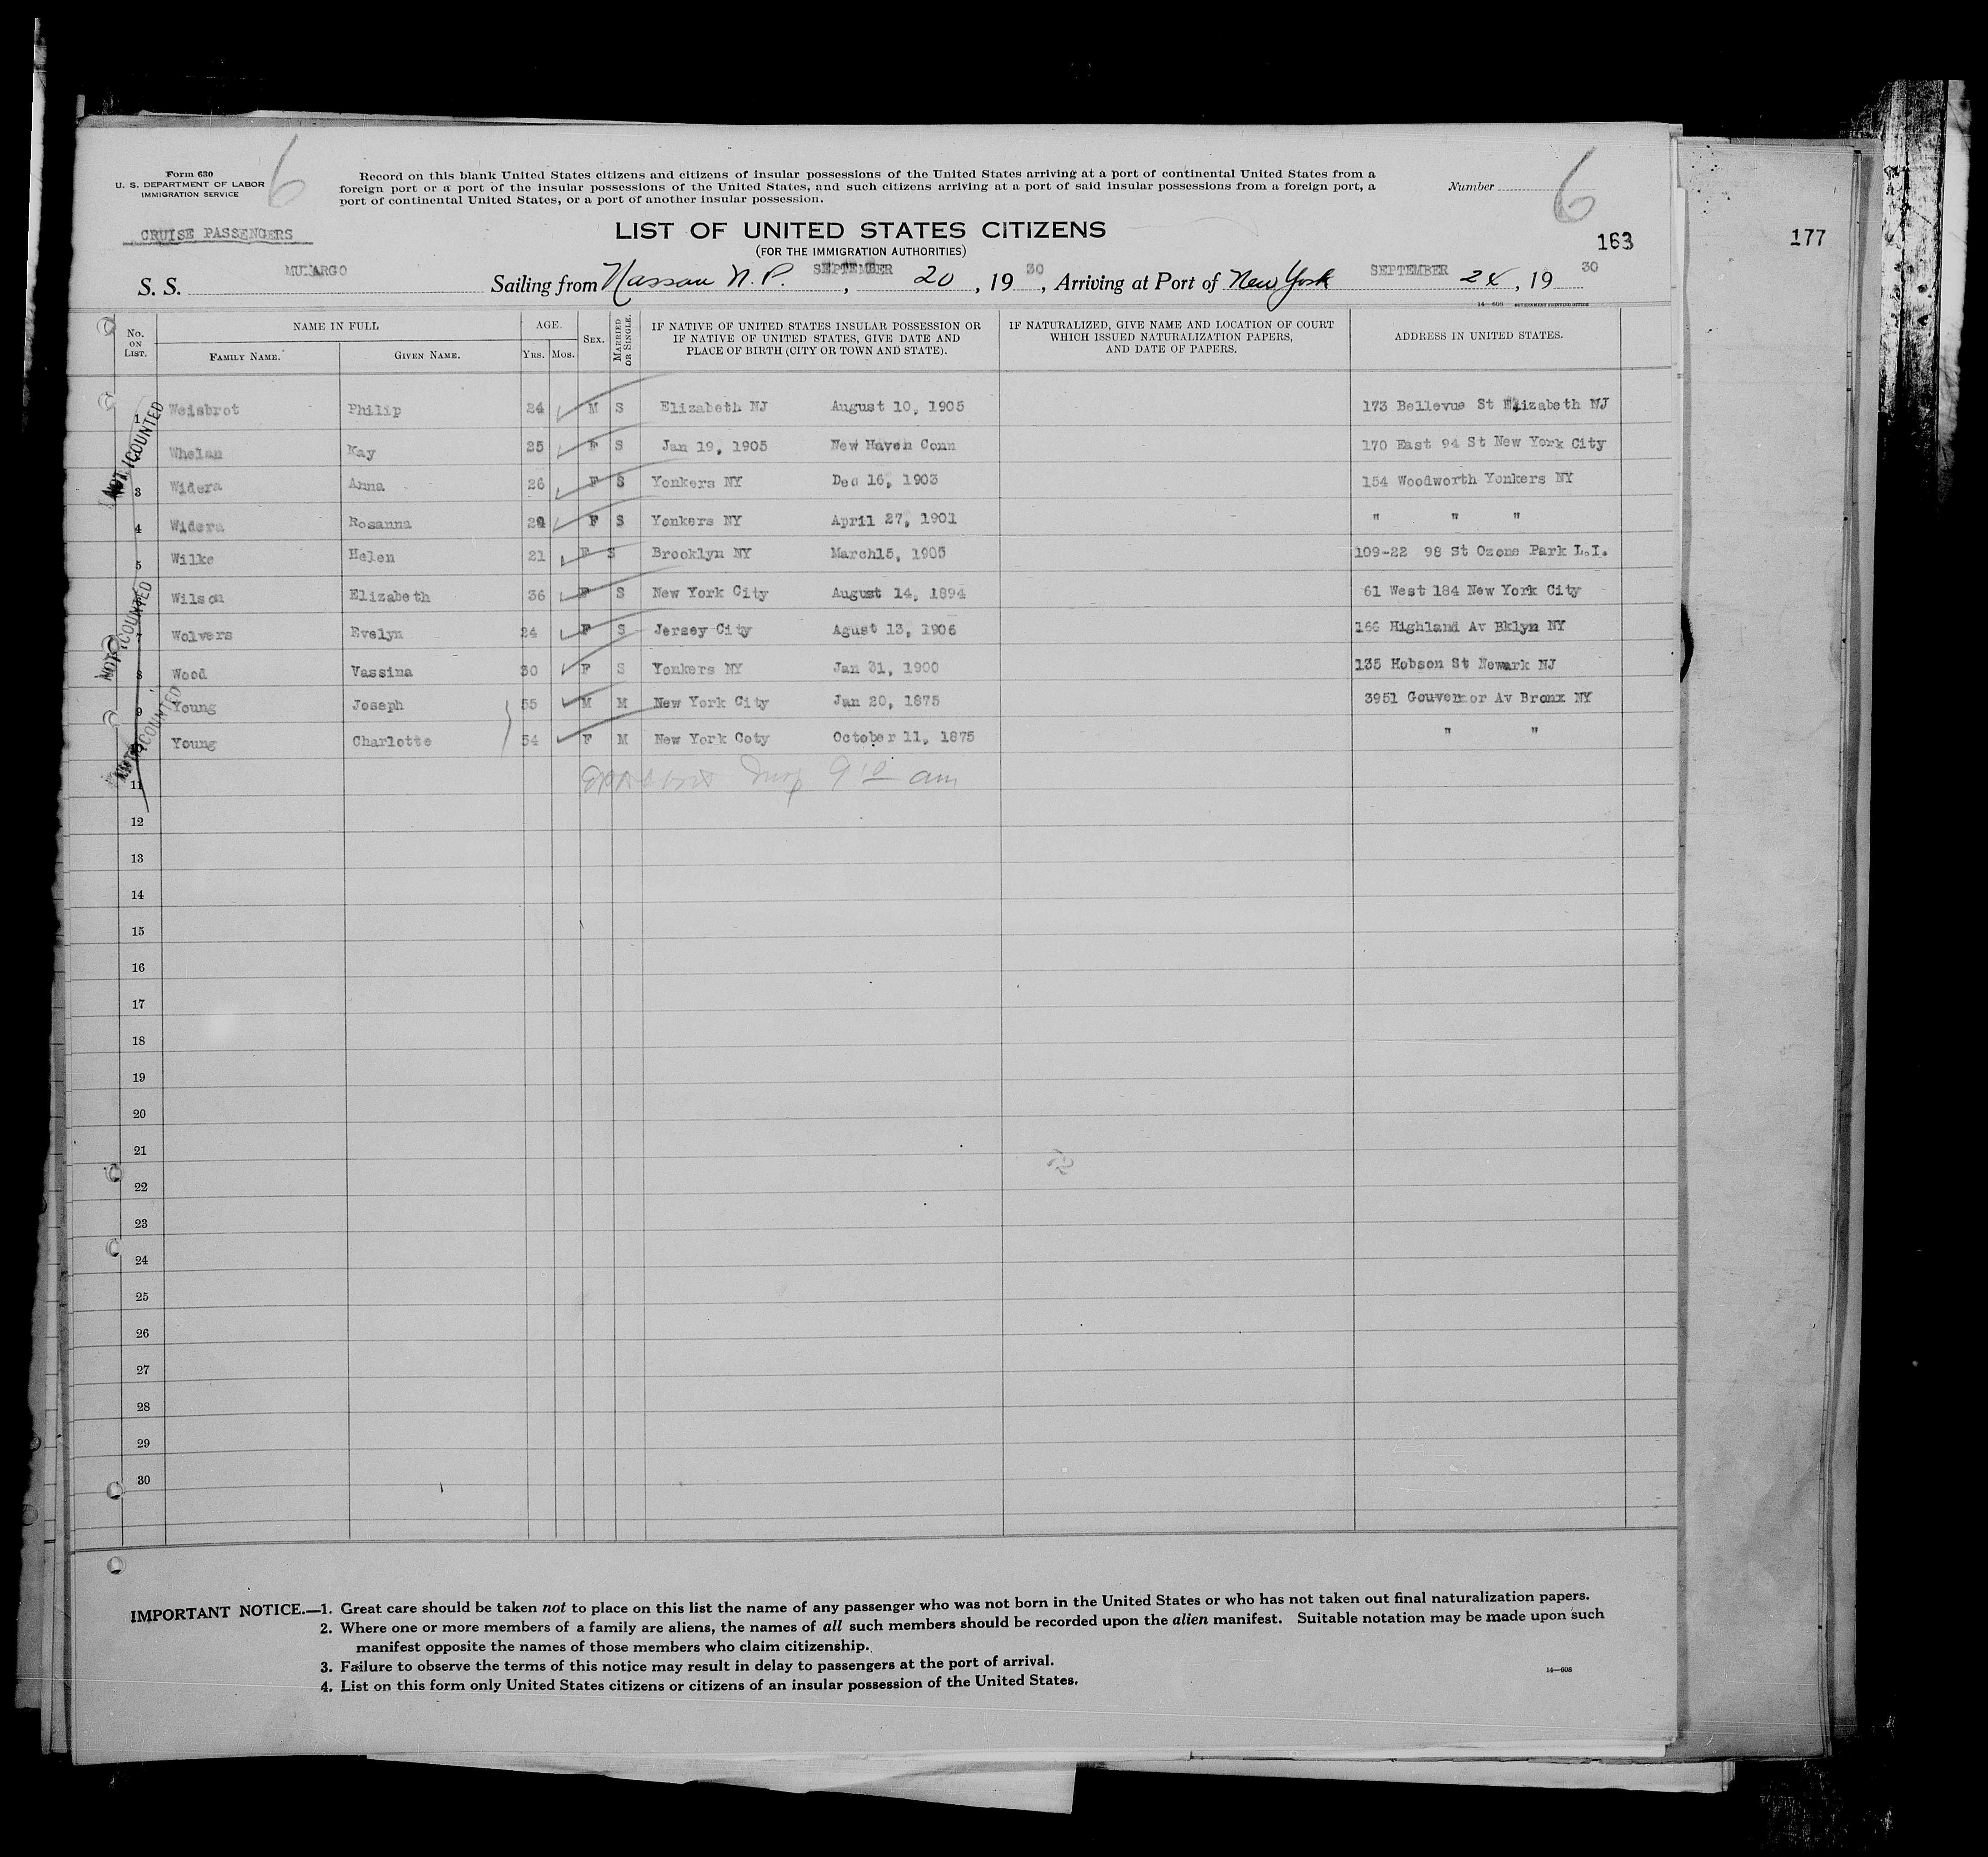 Form 630
U. S. DEPARTMENT OF LABOR
IMMIGRATION SERVICE
6
Record on this blank United States citizens and citizens of insular possessions of the United States arriving at a port of continental United States from a
foreign port or a port of the insular possessions of the United States, and such citizens arriving at a port of said insular possessions from a foreign port, a
port of continental United States, or a port of another insular possession.
Number 6
CRUISE PASSENGERS
LIST OF UNITED STATES CITIZENS
(FOR THE IMMIGRATION AUTHORITIES)
163
177
S. S. MUNARGO Sailing from Nassau N.P. SEPTEMBER 20, 1930, Arriving at Port of New York SEPTEMBER 24, 1930
14—608 GOVERNMENT PRINTING OFFICE
No. ON LIST. NAME IN FULL FAMILY NAME. GIVEN NAME. AGE. YRS. MOS. SEX. MARRIED OR SINGLE. IF NATIVE OF UNITED STATES INSULAR POSSESSION OR IF NATIVE OF UNITED STATES, GIVE DATE AND PLACE OF BIRTH (CITY OR TOWN AND STATE). IF NATURALIZED, GIVE NAME AND LOCATION OF COURT WHICH ISSUED NATURALIZATION PAPERS, AND DATE OF PAPERS. ADDRESS IN UNITED STATES.
1 Weisbrot Philip 24 M S Elizabeth NJ August 10, 1905 173 Bellevue St Elizabeth NJ
Whelan Kay 25 F S Jan 19, 1905 New Haven Conn 170 East 94 St New York City
3 Widera Anna 26 F S Yonkers NY Dec 16, 1903 154 Woodworth Yonkers NY
4 Widera Rosanna 29 F S Yonkers NY April 27, 1901 " " "
5 Wilke Helen 21 F S Brooklyn NY March15, 1905 109-22 98 St Ozone Park L.I.
6 Wilson Elizabeth 36 F S New York City August 14, 1894 61 West 184 New York City
7 Wolvers Evelyn 24 F S Jersey City Agust 13, 1906 166 Highland Av Bklyn NY
8 Wood Vassina 30 F S Yonkers NY Jan 31, 1900 135 Hobson St Newark NJ
9 Young Joseph 55 M M New York City Jan 20, 1875 3951 Gouvernor Av Bronx NY
10 Young Charlotte 54 F M New York Coty October 11, 1875 " "
NOT COUNTED
NOT COUNTED
NOT COUNTED
11
am
12
13
14
15
16
17
18
19
20
21
22
23
24
25
26
27
28
29
30
IMPORTANT NOTICE.—1. Great care should be taken not to place on this list the name of any passenger who was not born in the United States or who has not taken out final naturalization papers.
2. Where one or more members of a family are aliens, the names of all such members should be recorded upon the alien manifest. Suitable notation may be made upon such
manifest opposite the names of those members who claim citizenship.
3. Failure to observe the terms of this notice may result in delay to passengers at the port of arrival.
4. List on this form only United States citizens or citizens of an insular possession of the United States.
14—608